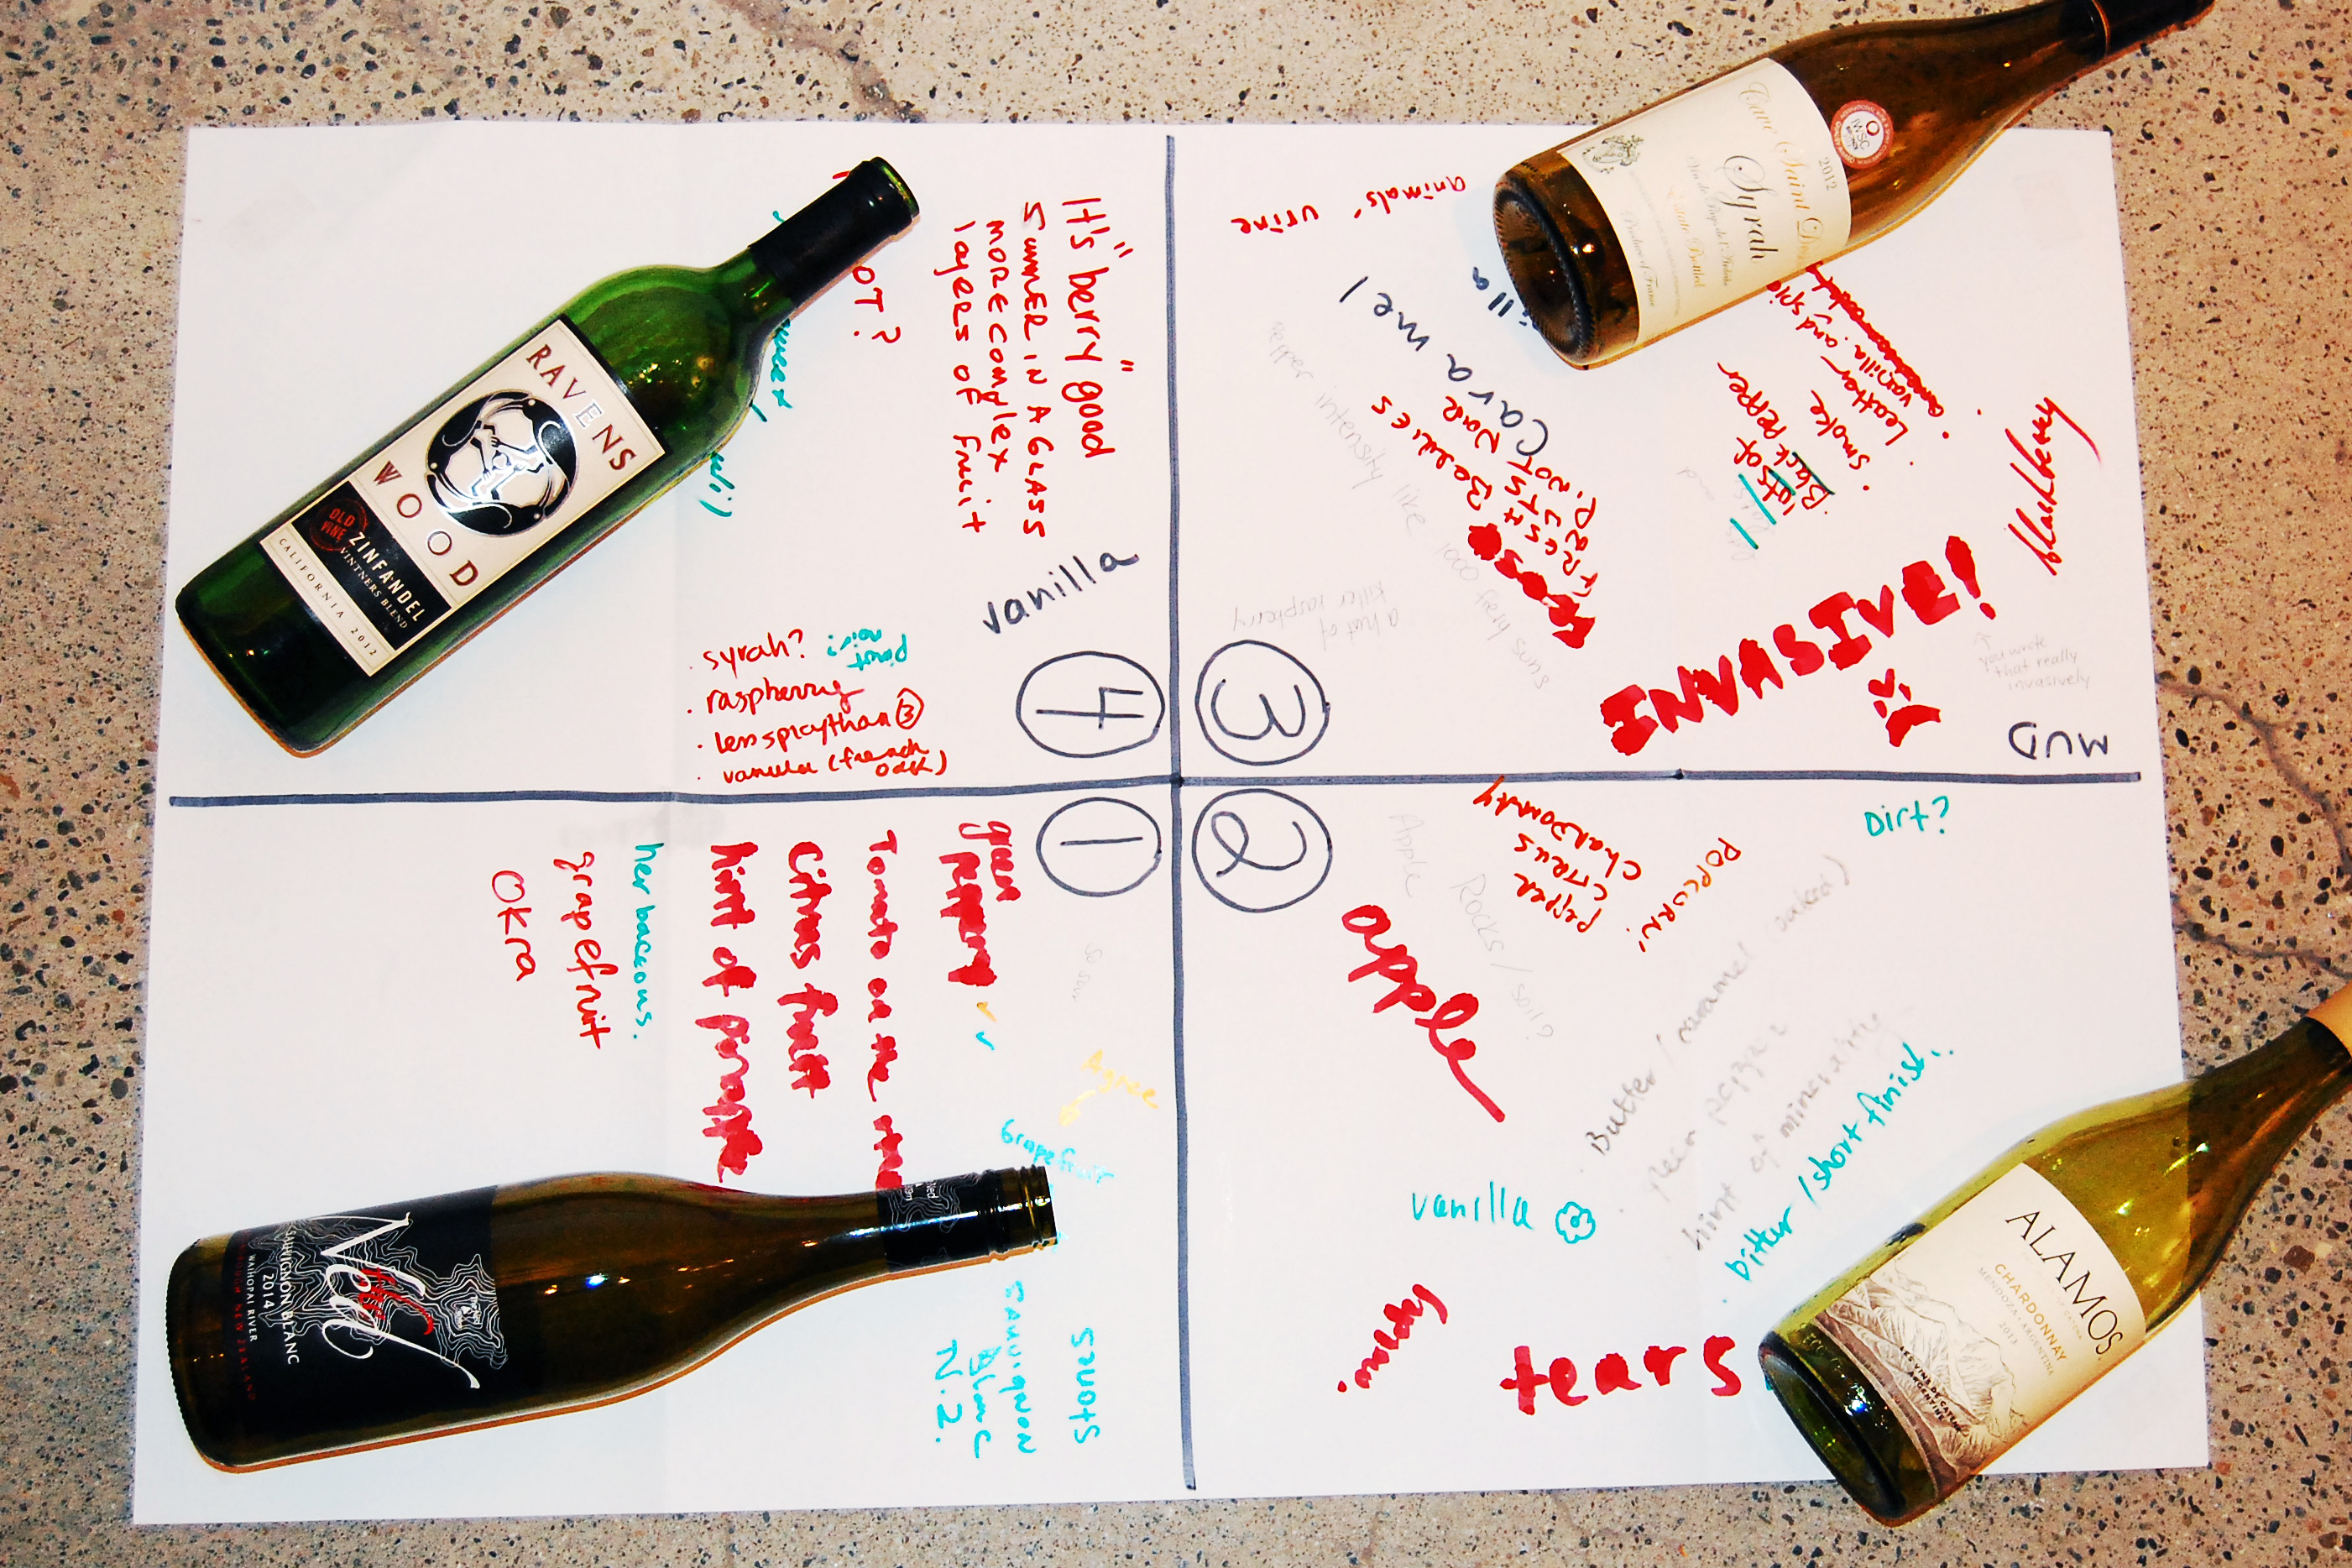 RAVENS
WOOD
OLD
VINE
ZINFANDEL
VINTNERS BLEND
CALIFORNIA 2012
OT?
It's "berry" good
SUMMER IN A GLASS
MORE COMPLEX
layers of fruit
vanilla
4
. syrah?
pinot
noir?
. raspberry
. less spicy than 3
. vanilla (french
oak)
animals' urine
caramel
FRESH BERRIES
pepper intensity like 1000 fiery suns
a hint of
killer raspberry
3
Cave Saint
2012
Syrah
Estate Bottled
IWSC
. Leather
. smoke
. lots of
Black PEPPER
vanilla and
blackberry
INVASIVE!
you wrote
that really
invasively
MUD
1
green
peppery
Tomato on the vine
citrus fruit
hint of pineapple
herbaceous.
grapefruit
OKra
so sour
Agree
grapefruit
STONES
SAUVIGNON
Blanc
N.Z.
SAUVIGNON BLANC
2014
WAIHOPAI RIVER
MARLBOROUGH NEW ZEALAND
2
Chardonnay
CITRUS
pepper
POPCORN!
Dirt?
Apple
Rocks / soil?
apple
. Butter / caramel
. hint of minerality
. bitter / short finish.
vanilla
tears
ALAMOS.
CHARDONNAY
MENDOZA • ARGENTINA
2013